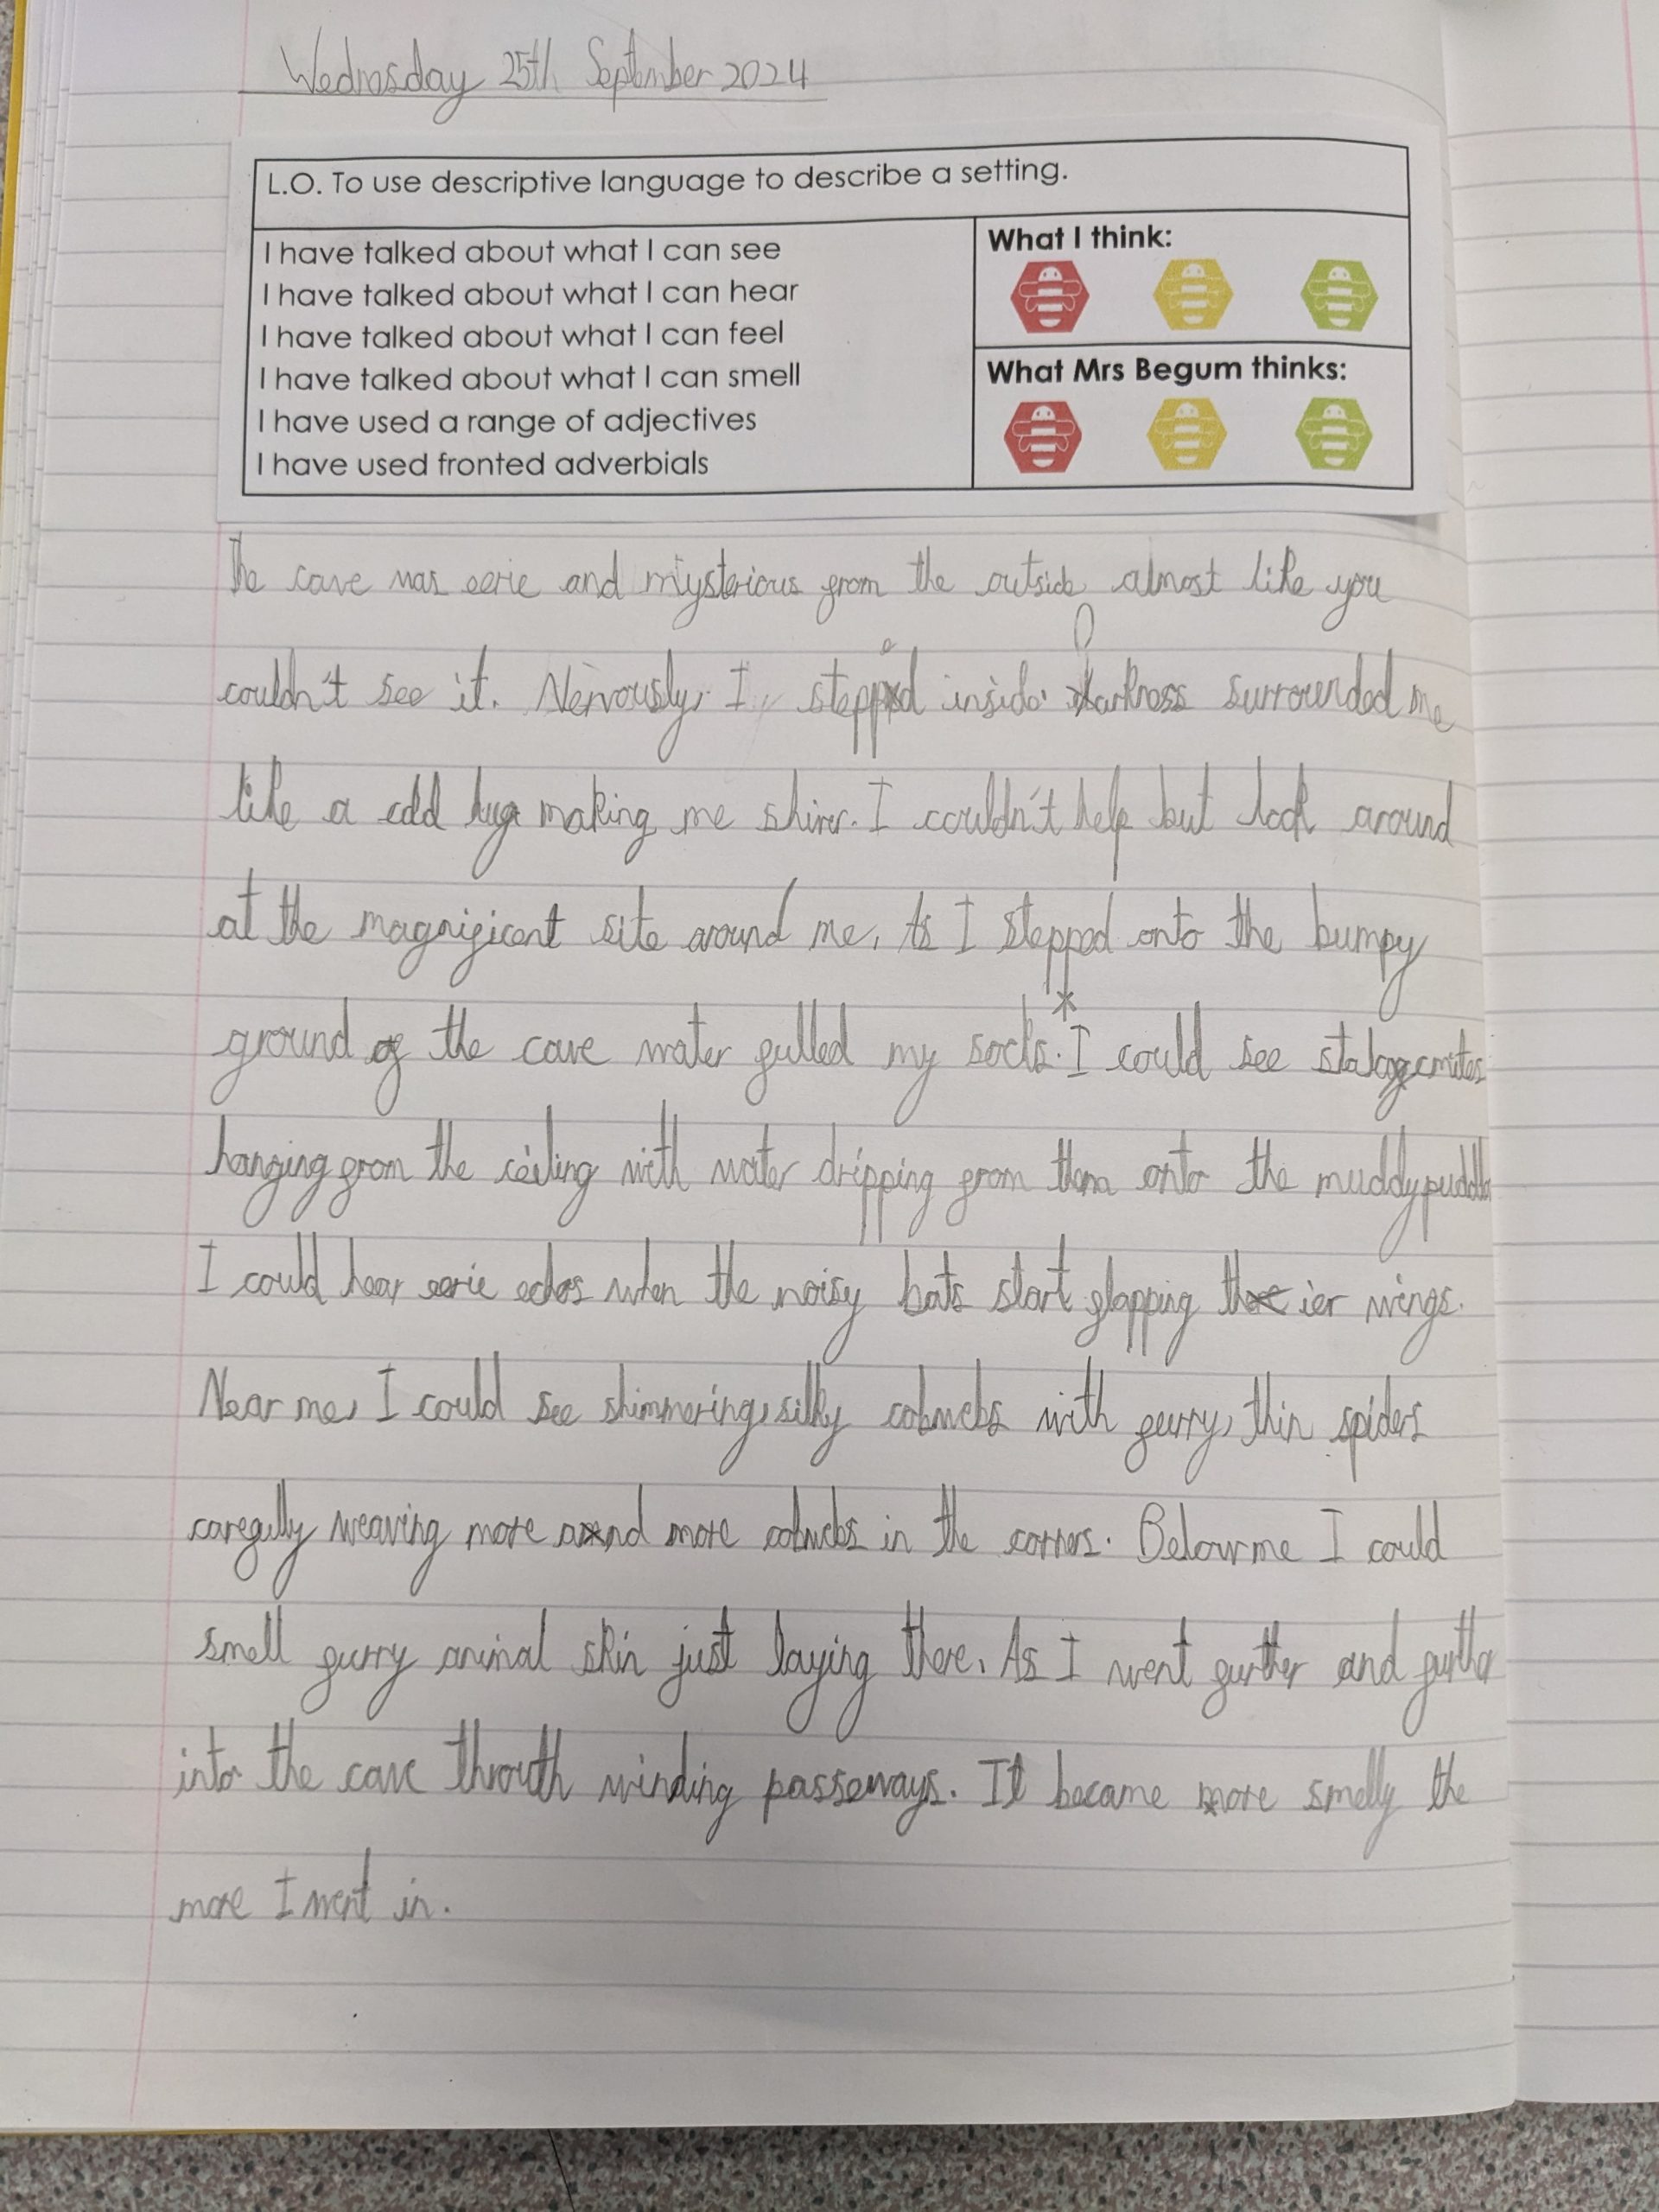 Wednesday 25th September 2024
L.O. To use descriptive language to describe a setting.
I have talked about what I can see
I have talked about what I can hear
I have talked about what I can feel
I have talked about what I can smell
I have used a range of adjectives
I have used fronted adverbials
What I think:
What Mrs Begum thinks:
The cave was eerie and mysterious from the outside almost like you
couldn't see it. Nervously, I stepped inside. Darkness surrounded me
like a cold hug making me shiver. I couldn't help but look around
at the magnificent site around me. As I stepped onto the bumpy
ground of the cave water fulled my socks.* I could see
hanging from the ceiling with water dripping from them onto the muddy puddle
I could hear eerie echos when the noisy bats start flapping thier wings.
Near me, I could see shimmering, silky cobwebs with furry, thin spiders
carefully weaving more and more cobwebs in the corners. Below me I could
smell furry animal skin just laying there. As I went further and further
into the cave throuth winding passeways. It became more smelly the
more I went in.